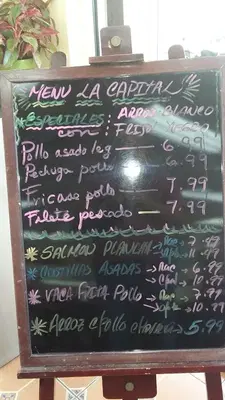 MENU LA CAPITAL
ESPECIALES: ARROZ BLANCO
con: FRIJO
Pollo asado leg 6.99
Pechuga pollo 6.99
Fricase pollo 7.99
Filete pescado 7.99
SALMON PLANCHA 7.99
11.99
COSTILLAS ASADAS → 6.89
→ 10.99
VACA FRITA Pollo → 7.99
→ 10.99
ARROZ C/Pollo 5.99